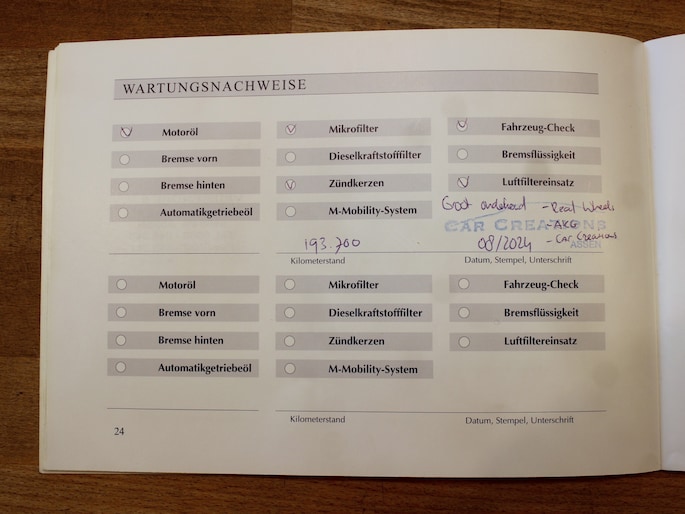 WARTUNGSNACHWEISE
Motoröl Mikrofilter Fahrzeug-Check
Bremse vorn Dieselkraftstofffilter Bremsflüssigkeit
Bremse hinten Zündkerzen Luftfiltereinsatz
Automatikgetriebeöl M-Mobility-System
Groot onderhoud - Real Wheels
CAR CREATIONS - AKG
193.700 08/2024 - Car Creations
ASSEN
Kilometerstand Datum, Stempel, Unterschrift
Motoröl Mikrofilter Fahrzeug-Check
Bremse vorn Dieselkraftstofffilter Bremsflüssigkeit
Bremse hinten Zündkerzen Luftfiltereinsatz
Automatikgetriebeöl M-Mobility-System
Kilometerstand Datum, Stempel, Unterschrift
24